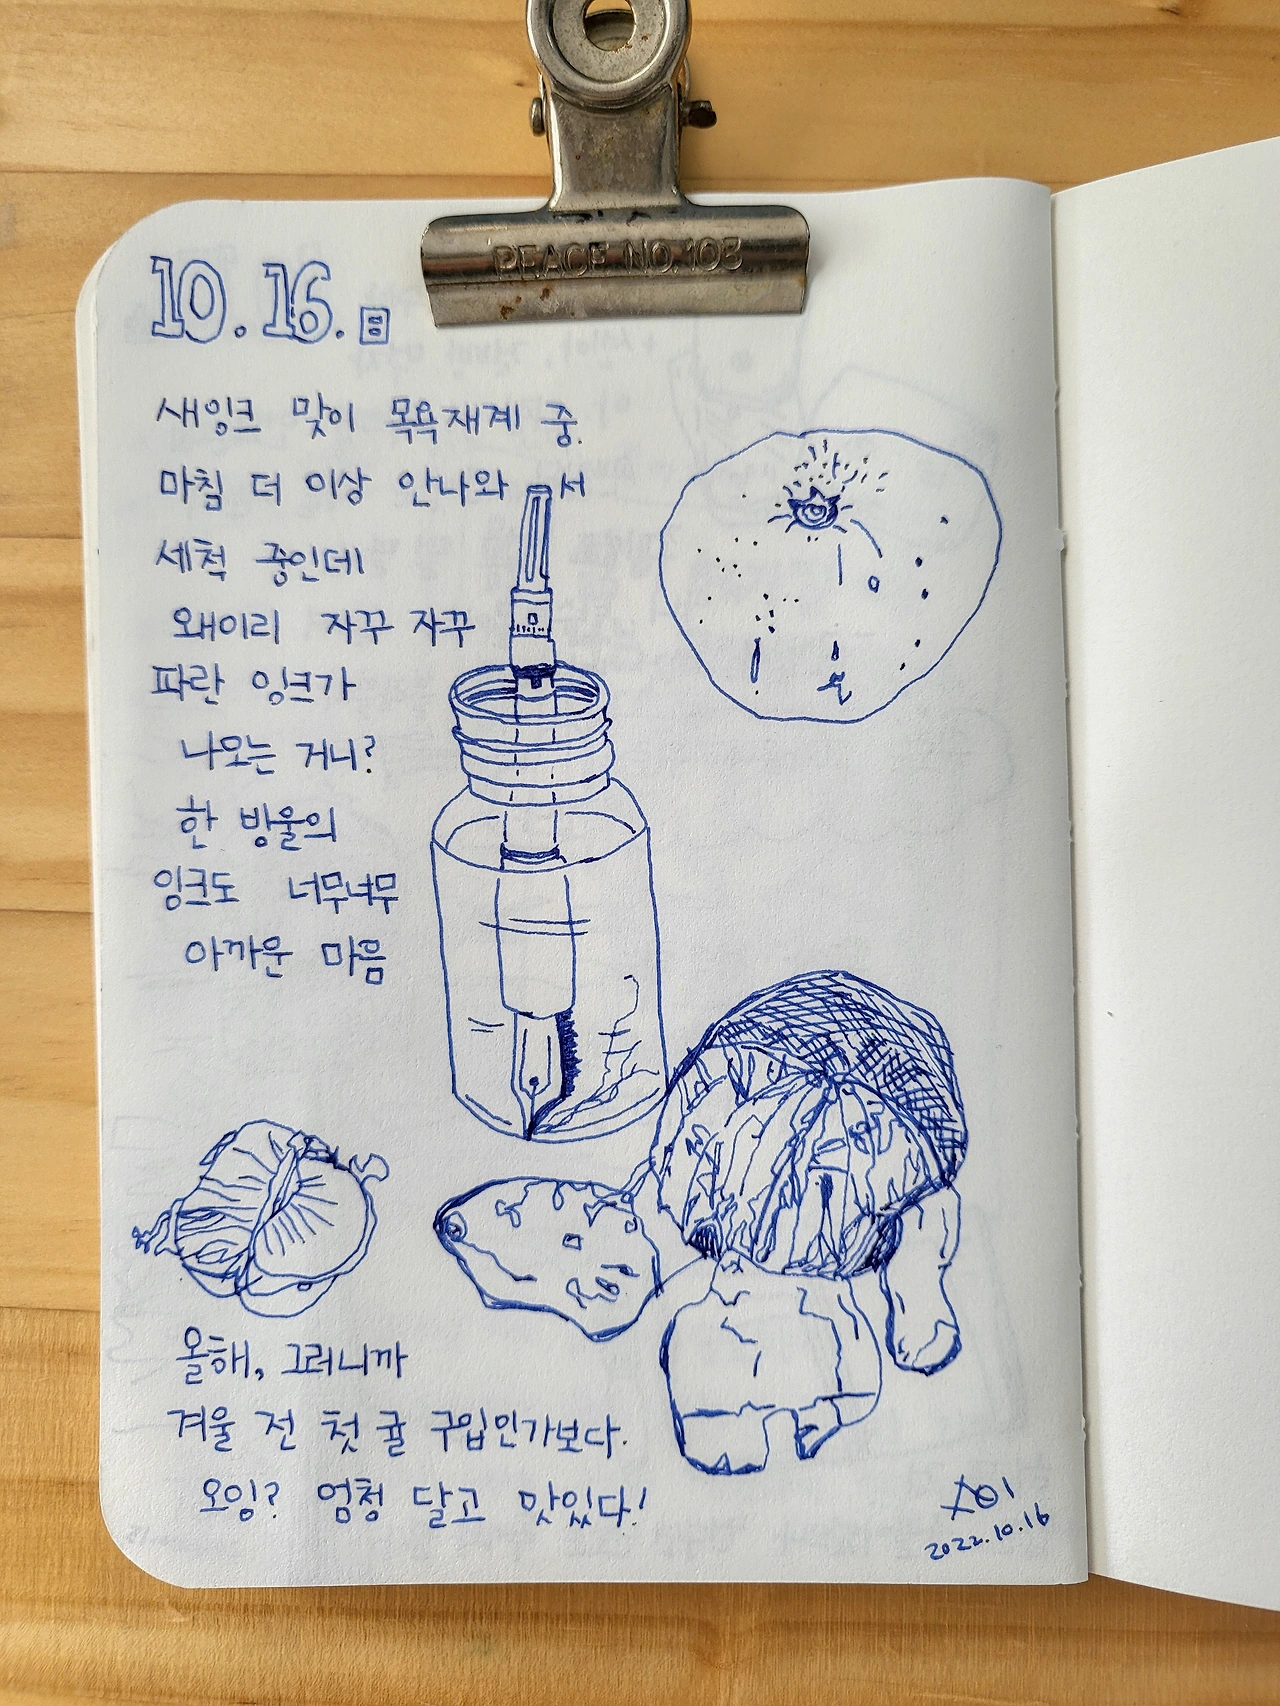 PEACE NO.103
10.16.日
새잉크 맞이 목욕재계 중.
마침 더 이상 안나와서
세척 중인데
왜이리 자꾸 자꾸
파란 잉크가
나오는 거니?
한 방울의
잉크도 너무너무
아까운 마음
올해, 그러니까
겨울 전 첫 귤 구입인가보다.
오잉? 엄청 달고 맛있다!
2022.10.16